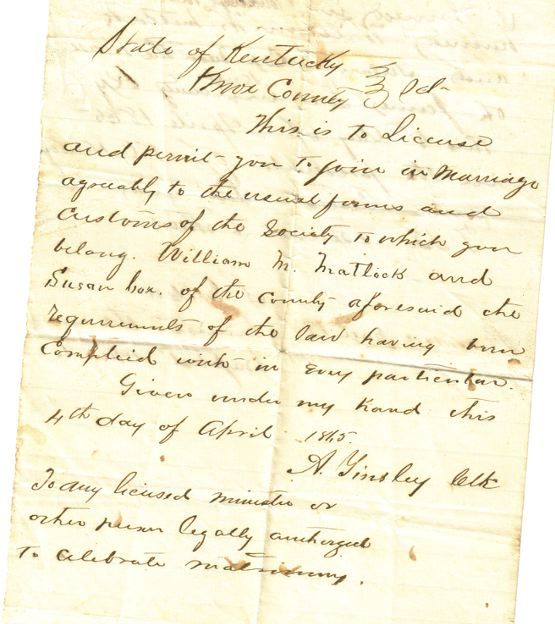 State of Kentucky
Knox County } Sct
This is to License
and permit you to join in Marriage
agreeably to the usual forms and
Customs of the Society to which you
belong. William M. Matlock and
Susan Cox. of the County aforesaid the
requirements of the law having been
Complied with in every particular.
Given under my hand this
4th day of April 1865.
A. Tinsley Clk
To any licensed minister or
other person legally authorized
to celebrate matrimony.